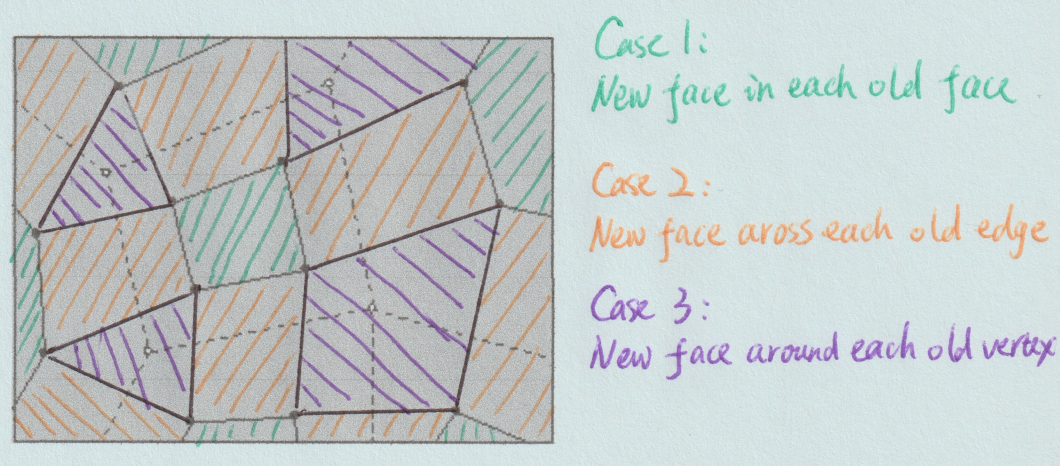 Case 1:
New face in each old face
Case 2:
New face aross each old edge
Case 3:
New face around each old vertex